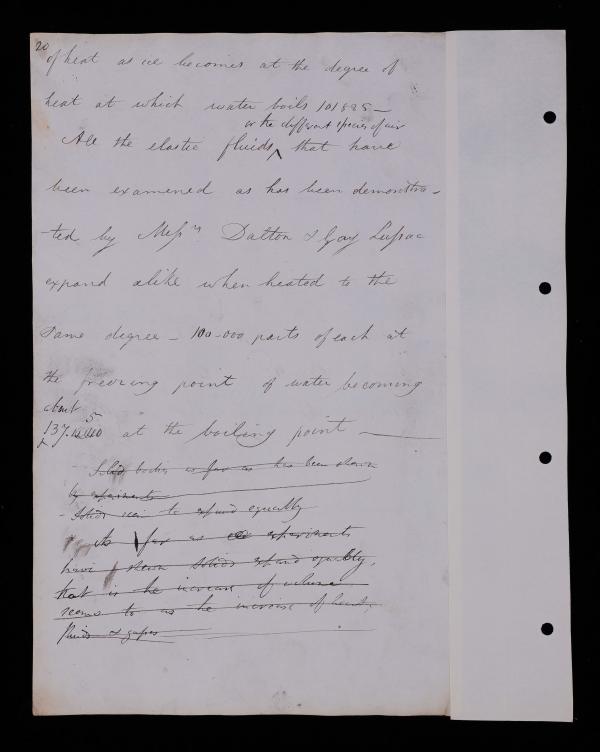 20
of heat as ice becomes at the degree of
heat at which water boils 101885 —
or the different species of air
All the elastic fluids ^ that have
been examened as has been demonstra-
-ted by Mess rs Dalton & Gay Lussac
expand alike when heated to the
same degree — 100-000 parts of each at
the freezing point of water becoming
about
137. 5 at the boiling point —
Solid bodies as far as has been shown
by experiments
- Solids seem to expand equally
As far as experiments
have shown solids expand equally,
that is the increase of volume
seems to as the increase of heat,
fluids & gases